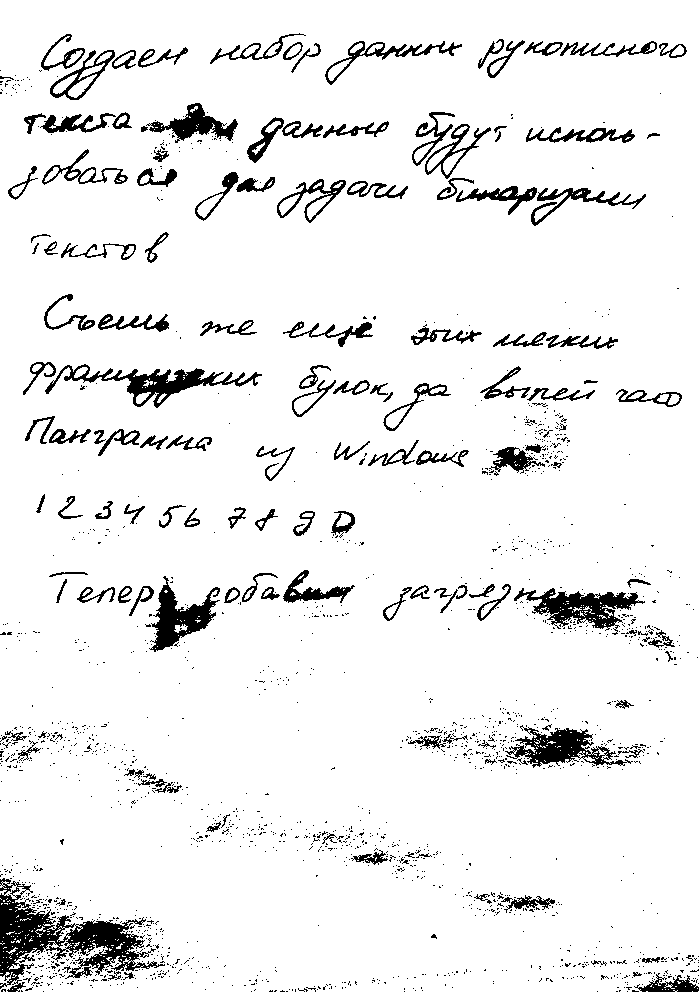 Создаем набор данных рукописного
текста. Эти данные будут исполь-
зоваться для задачи бинаризации
текстов
Съешь же ещё этих мягких
французских булок, да выпей чаю
Панграмма из Windows
1 2 3 4 5 6 7 8 9 0
Теперь собавим загрязнений.